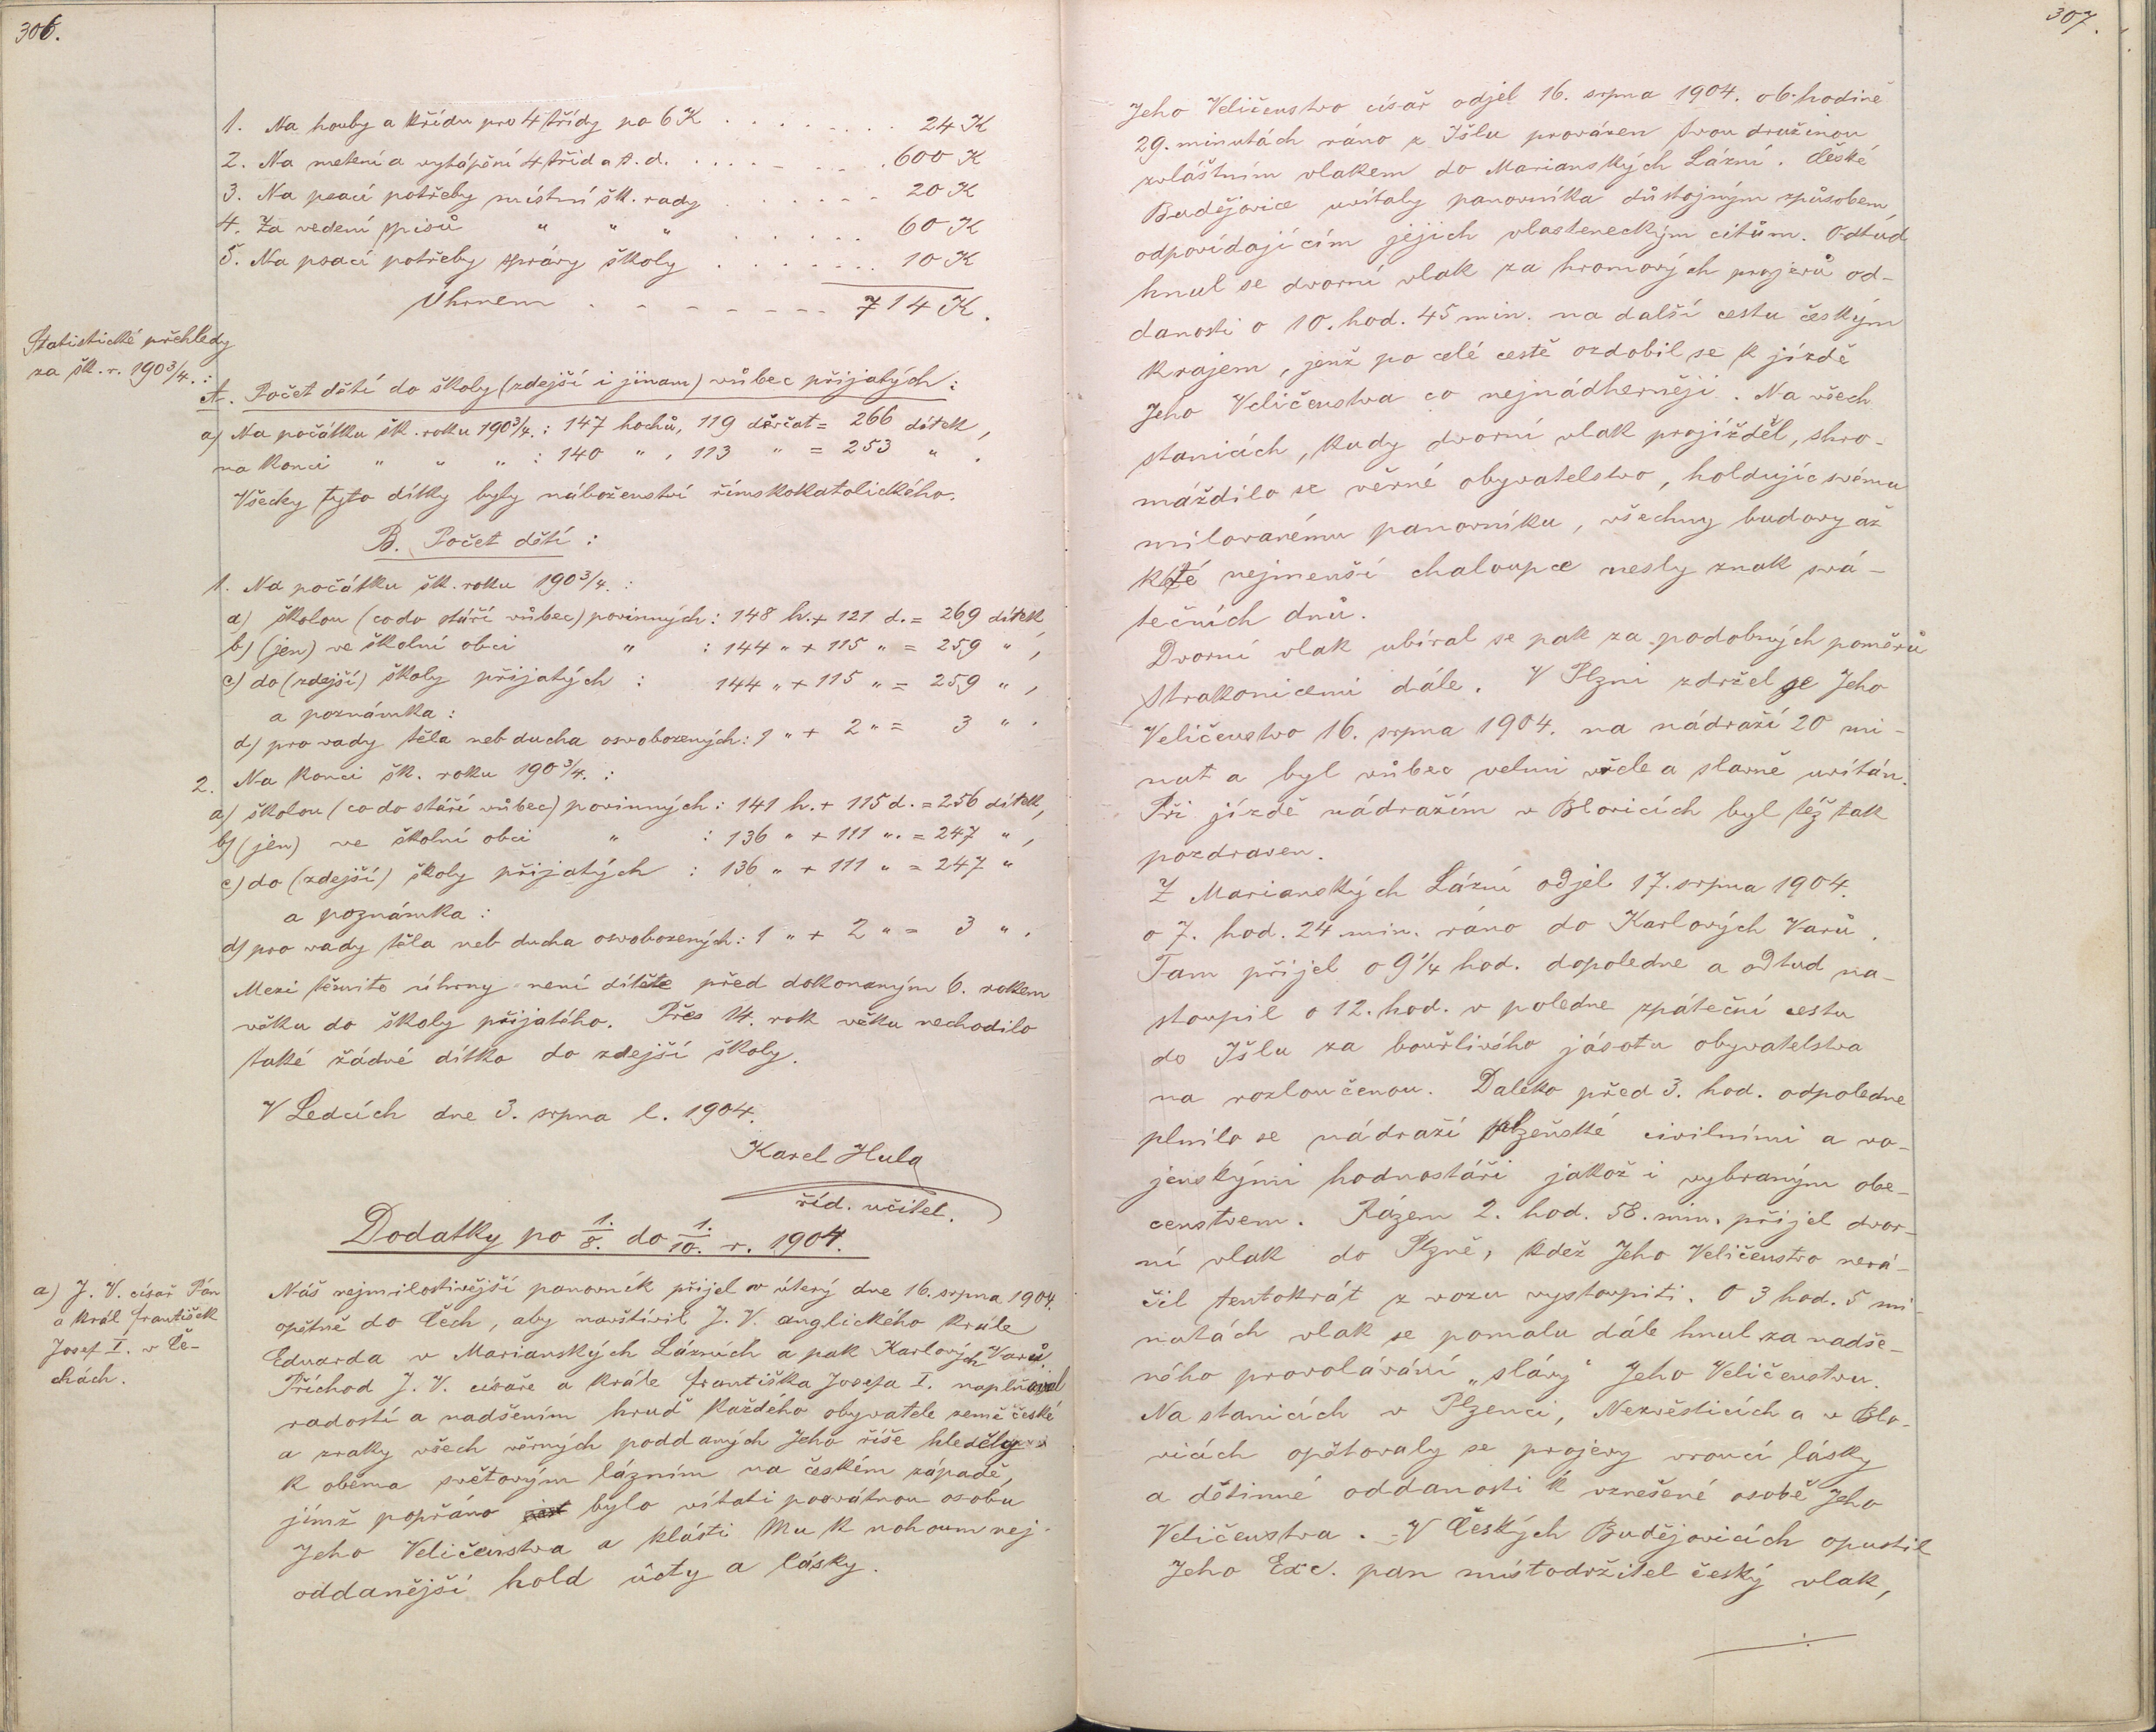 306.
1. Na houby a křídu pro 4 třídy po 6 K . . . . . . . . 24 K
2. Na metení a vytápění 4 tříd a t. d. . . . . . . . . 600 K
3. Na psací potřeby místní šk. rady . . . . . . . 20 K
4. Za vedení spisů " " " . . . . . . 60 K
5. Na psací potřeby správy školy . . . . . . . 10 K
Úhrnem . . . . . . . 714 K.
Statistické přehledy
za šk. r. 1903/4. :
A. Počet dětí do školy (zdejší i jinam) vůbec přijatých:
a) Na počátku šk. roku 1903/4. : 147 hochů, 119 děvčat = 266 dítek,
na konci " " " : 140 " , 113 " = 253 " .
Všecky tyto dítky byly náboženství římskokatolického.
B. Počet dětí :
1. Na počátku šk. roku 1903/4. :
a) školou (co do stáří vůbec) povinných : 148 h. + 121 d. = 269 dítek
b) (jen) ve školní obci " : 144 " + 115 " = 259 " ,
c) do (zdejší) školy přijatých : 144 " + 115 " = 259 " ,
a poznámka :
d) pro vady těla neb ducha osvobozených : 1 " + 2 " = 3 " .
2. Na konci šk. roku 1903/4. :
a) školou (co do stáří vůbec) povinných : 141 h. + 115 d. = 256 dítek,
b) (jen) ve školní obci " : 136 " + 111 " . = 247 " ,
c) do (zdejší) školy přijatých : 136 " + 111 " = 247 "
a poznámka :
d) pro vady těla neb ducha osvobozených : 1 " + 2 " = 3 " .
Mezi těmito úhrny není dítěte před dokonaným 6. rokem
věku do školy přijatého. Přes 14. rok věku nechodilo
také žádné dítko do zdejší školy.
V Ledcích dne 3. srpna l. 1904.
Karel Hula
říd. učitel.
Dodatky po 1./8. do 1./10. r. 1904.
a) J. V. císař Pán
a král František
Josef I. v Če-
chách.
Náš nejmilostivější panovník přijel v úterý dne 16. srpna 1904.
opětně do Čech, aby navštívil J. V. anglického krále
Eduarda v Marianských Lázních a pak Karlových Varů.
Příchod J. V. císaře a krále Františka Josefa I. naplňoval
radostí a nadšením hruď každého obyvatele země české
a zraky všech věrných poddaných Jeho říše hleděly
k oběma světovým lázním na českém západě,
jimž popřáno bylo vítati posvátnou osobu
Jeho Veličenstva a klásti Mu k nohoum nej-
oddanější hold úcty a lásky.
307.
Jeho Veličenstvo císař odjel 16. srpna 1904. o 6. hodině
29. minutách ráno z Išlu provázen svou družinou
zvláštním vlakem do Marianských Lázní. České
Budějovice uvítaly panovníka důstojným způsobem,
odpovídajícím jejich vlasteneckým citům. Odtud
hnul se dvorní vlak za hromových projevů od-
danosti o 10. hod. 45 min. na další cestu českým
krajem, jenž po celé cestě ozdobil se k jízdě
Jeho Veličenstva co nejnádherněji. Na všech
stanicích, kudy dvorní vlak projížděl, shro-
máždilo se věrné obyvatelstvo, holdujíc svému
milovanému panovníku, všechny budovy až
k té nejmenší chaloupce nesly znak svá-
tečních dnů.
Dvorní vlak ubíral se pak za podobných poměrů
Strakonicemi dále. V Plzni zdržel se Jeho
Veličenstvo 16. srpna 1904. na nádraží 20 mi-
nut a byl vůbec velmi vřele a slavně uvítán.
Při jízdě nádražím v Blovicích byl též tak
pozdraven.
Z Marianských Lázní odjel 17. srpna 1904.
o 7. hod. 24 min. ráno do Karlových Varů.
Tam přijel o 9 1/4 hod. dopoledne a odtud na-
stoupil o 12. hod. v poledne zpáteční cestu
do Išlu za bouřlivého jásotu obyvatelstva
na rozloučenou. Daleko před 3. hod. odpoledne
plnilo se nádraží plzeňské civilními a vo-
jenskými hodnostáři jakož i vybraným obe-
censtvem. Rázem 2. hod. 58. min. přijel dvor-
ní vlak do Plzně, kdež Jeho Veličenstvo nerá-
čil tentokrát z vozu vystoupiti. O 3 hod. 5 mi-
nutách vlak se pomalu dále hnul za nadše-
ného provolávání „slávy“ Jeho Veličenstvu.
Na stanicích v Plzenci, Nezvěsticích a v Blo-
vicích opětovaly se projevy vroucí lásky
a dětinné oddanosti k vznešené osobě Jeho
Veličenstva. - V Českých Budějovicích opustil
Jeho Exc. pan místodržitel český vlak,